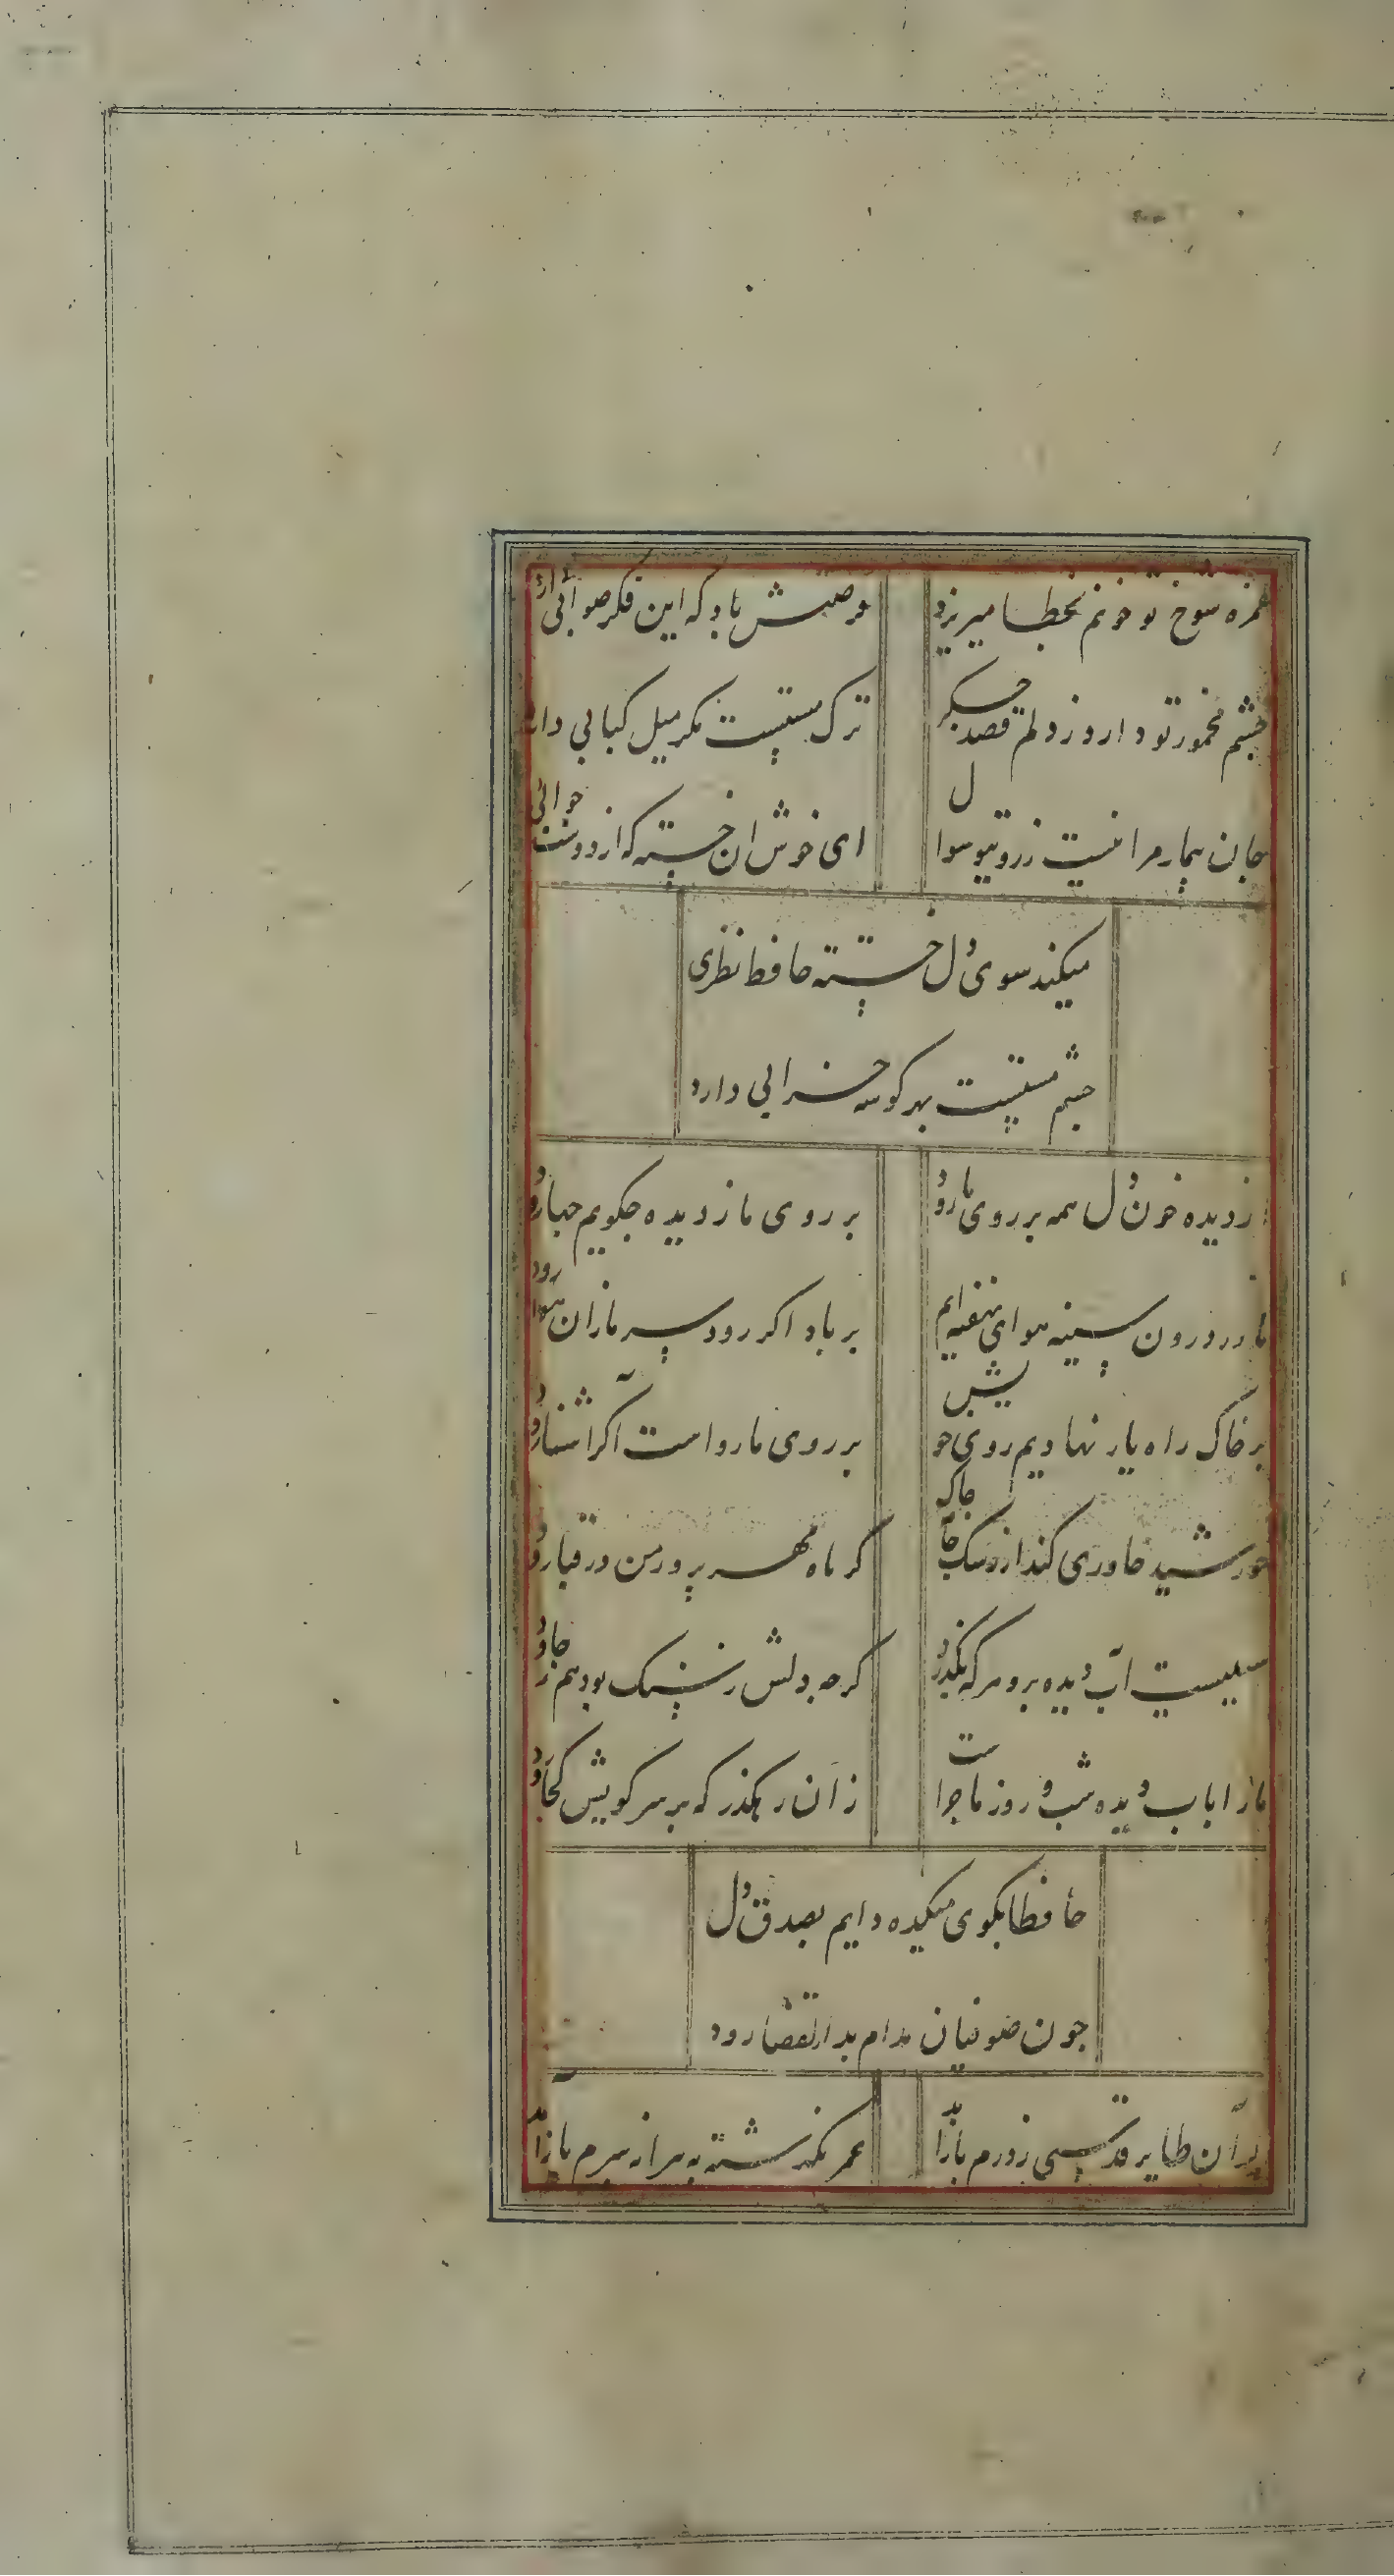 غمزه شوخ تو خونم بخطا میریزد فرصتش باد که این فکر صوابی دارد
چشم مخمور تو دارد ز دلم قصد جگر ترک مستیست مگر میل کبابی دارد
جان بیمار مرا نیست ز تو روی سوال ای خوش آن خسته که از دوست جوابی
میکند سوی دل خسته حافظ نظری
چشم مستیست بهر گوشه خرابی دارد
از دیده خون دل همه بر روی ما رود بر روی ما ز دیده چگویم چها رود
ما در درون سینه هوای نهفته‌ایم بر باد اگر رود سر ما زان هوا رود
بر خاک راه یار نهادیم روی خویش بر روی ما رواست اگر آشنا رود
خورشید خاوری کند از رشک جامه چاک گر ماه مهرپرور من در قبا رود
سیلیست آب دیده بر و هر که بگذرد گرچه دلش ز سنگ بود هم ز جا رود
ما را باب دیده شب و روز ماجراست زان رهگذر که بر سر کویش چرا رود
حافظ بکوی میکده دایم بصدق دل
چون صوفیان مدام بدار القضا رود
گر آن طایر قدسی ز درم بازآید عمر بگذشته به سرانه سرم بازآید